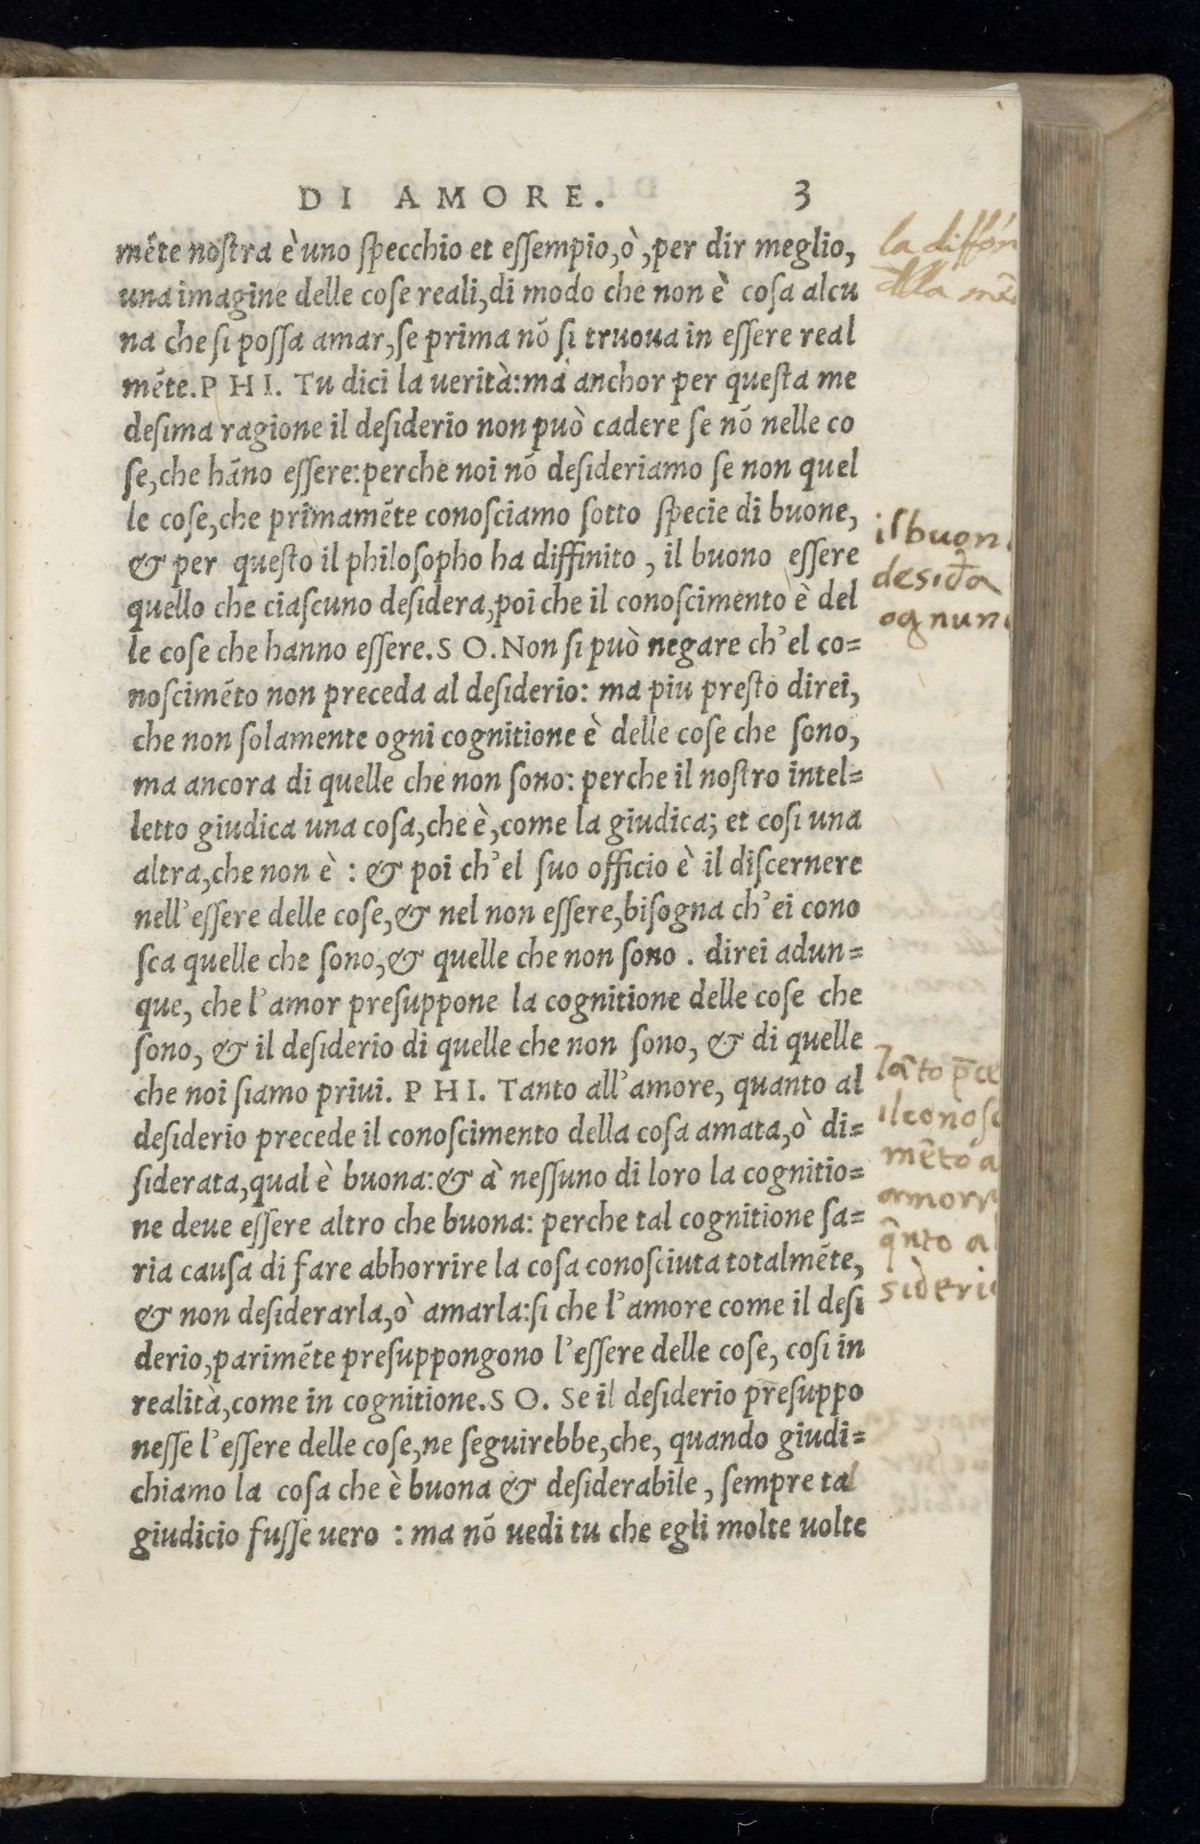 DI AMORE. 3
mēte nostra è uno specchio et essempio, ò, per dir meglio,
una imagine delle cose reali, di modo che non è cosa alcu
na che si possa amar, se prima nō si truova in essere real
mēte. PHI. Tu dici la uerità: ma anchor per questa me
desima ragione il desiderio non può cadere se nō nelle co
se, che hāno essere: perche noi nō desideriamo se non quel
le cose, che primamēte conosciamo sotto specie di buone,
& per questo il philosopho ha diffinito, il buono essere
quello che ciascuno desidera, poi che il conoscimento è del
le cose che hanno essere. SO. Non si può negare ch'el co=
noscimēto non preceda al desiderio: ma piu presto direi,
che non solamente ogni cognitione è delle cose che sono,
ma ancora di quelle che non sono: perche il nostro intel=
letto giudica una cosa, che è, come la giudica; et cosi una
altra, che non è: & poi ch'el suo officio è il discernere
nell'essere delle cose, & nel non essere, bisogna ch'ei cono
sca quelle che sono, & quelle che non sono. direi adun=
que, che l'amor presuppone la cognitione delle cose che
sono, & il desiderio di quelle che non sono, & di quelle
che noi siamo priui. PHI. Tanto all'amore, quanto al
desiderio precede il conoscimento della cosa amata, ò di=
siderata, qual è buona: & à nessuno di loro la cognitio=
ne deue essere altro che buona: perche tal cognitione sa=
ria causa di fare abhorrire la cosa conosciuta totalmēte,
& non desiderarla, ò amarla: si che l'amore come il desi
derio, parimēte presuppongono l'essere delle cose, cosi in
realità, come in cognitione. SO. Se il desiderio presuppo
nesse l'essere delle cose, ne seguirebbe, che, quando giudi=
chiamo la cosa che è buona & desiderabile, sempre tal
giudicio fusse uero: ma nō uedi tu che egli molte uolte
la
il buon
desid̄a
ognun
Tāto p̄ce
il conosc
mēto a
amor
q̄nto a
sideri